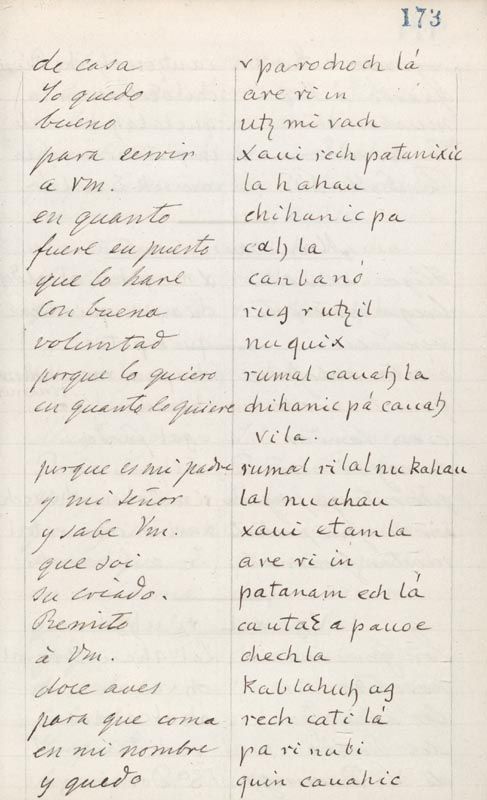 173
de casa vparochoch lá
Yo quedo are ri in
bueno utz mi vach
para servir xaui rech patanixic
a Vm. la hahau
en quanto chihanic pa
fuere eu puesto cah la
que lo hare canbanó
con buena rug rutzil
voluntad nu quix
porque lo quiero rumal cauah la
en quanto lo quiere chihanic pá cauah
vila.
porque es mi padre rumal ri lal nu kahau
y mi señor lal nu ahau
y sabe Vm. xaui etamla
que soi are ri in
su criado. patanam ech lá
Remito cauta pauoe
à Vm. chech la
doce aves kablahuh ag
para que coma rech cati lá
en mi nombre pa ri nubi
y quedo quin cauahic